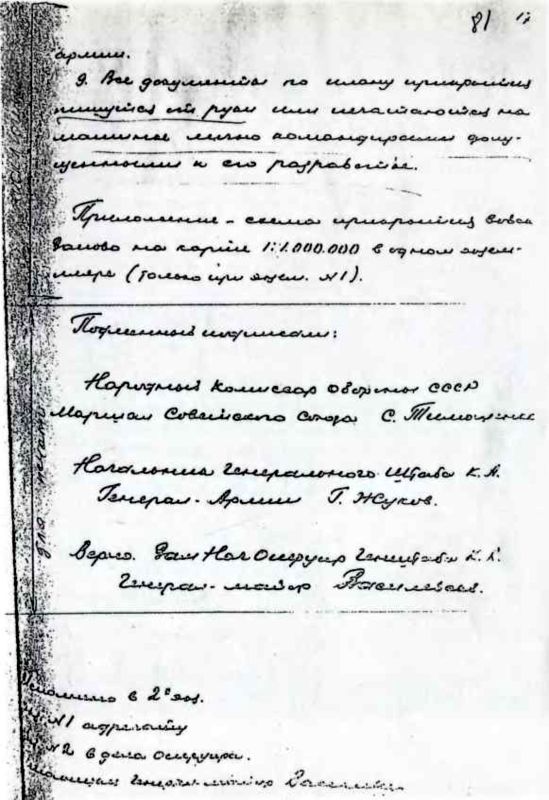 81
армии.
9. Все документы по плану прикрытия
пишутся от руки или печатаются на
машинке лично командирами допу-
щенными к его разработке.
Приложение - схема прикрытия
на карте 1:1.000.000 в одном экзем-
пляре (только при экзем. №1).
Подлинный подписали:
Народный Комиссар Обороны СССР
Маршал Советского Союза С. Тимошенко
Начальник Генерального Штаба К.А.
Генерал-Армии Г. Жуков.
Верно: Зам Нач Оперупр Генштаба К.А.
Генерал-майор Василевский.
в 2 экз.
№1 адресату
№2 в дело Оперупра.
Генерал-майор Василевский